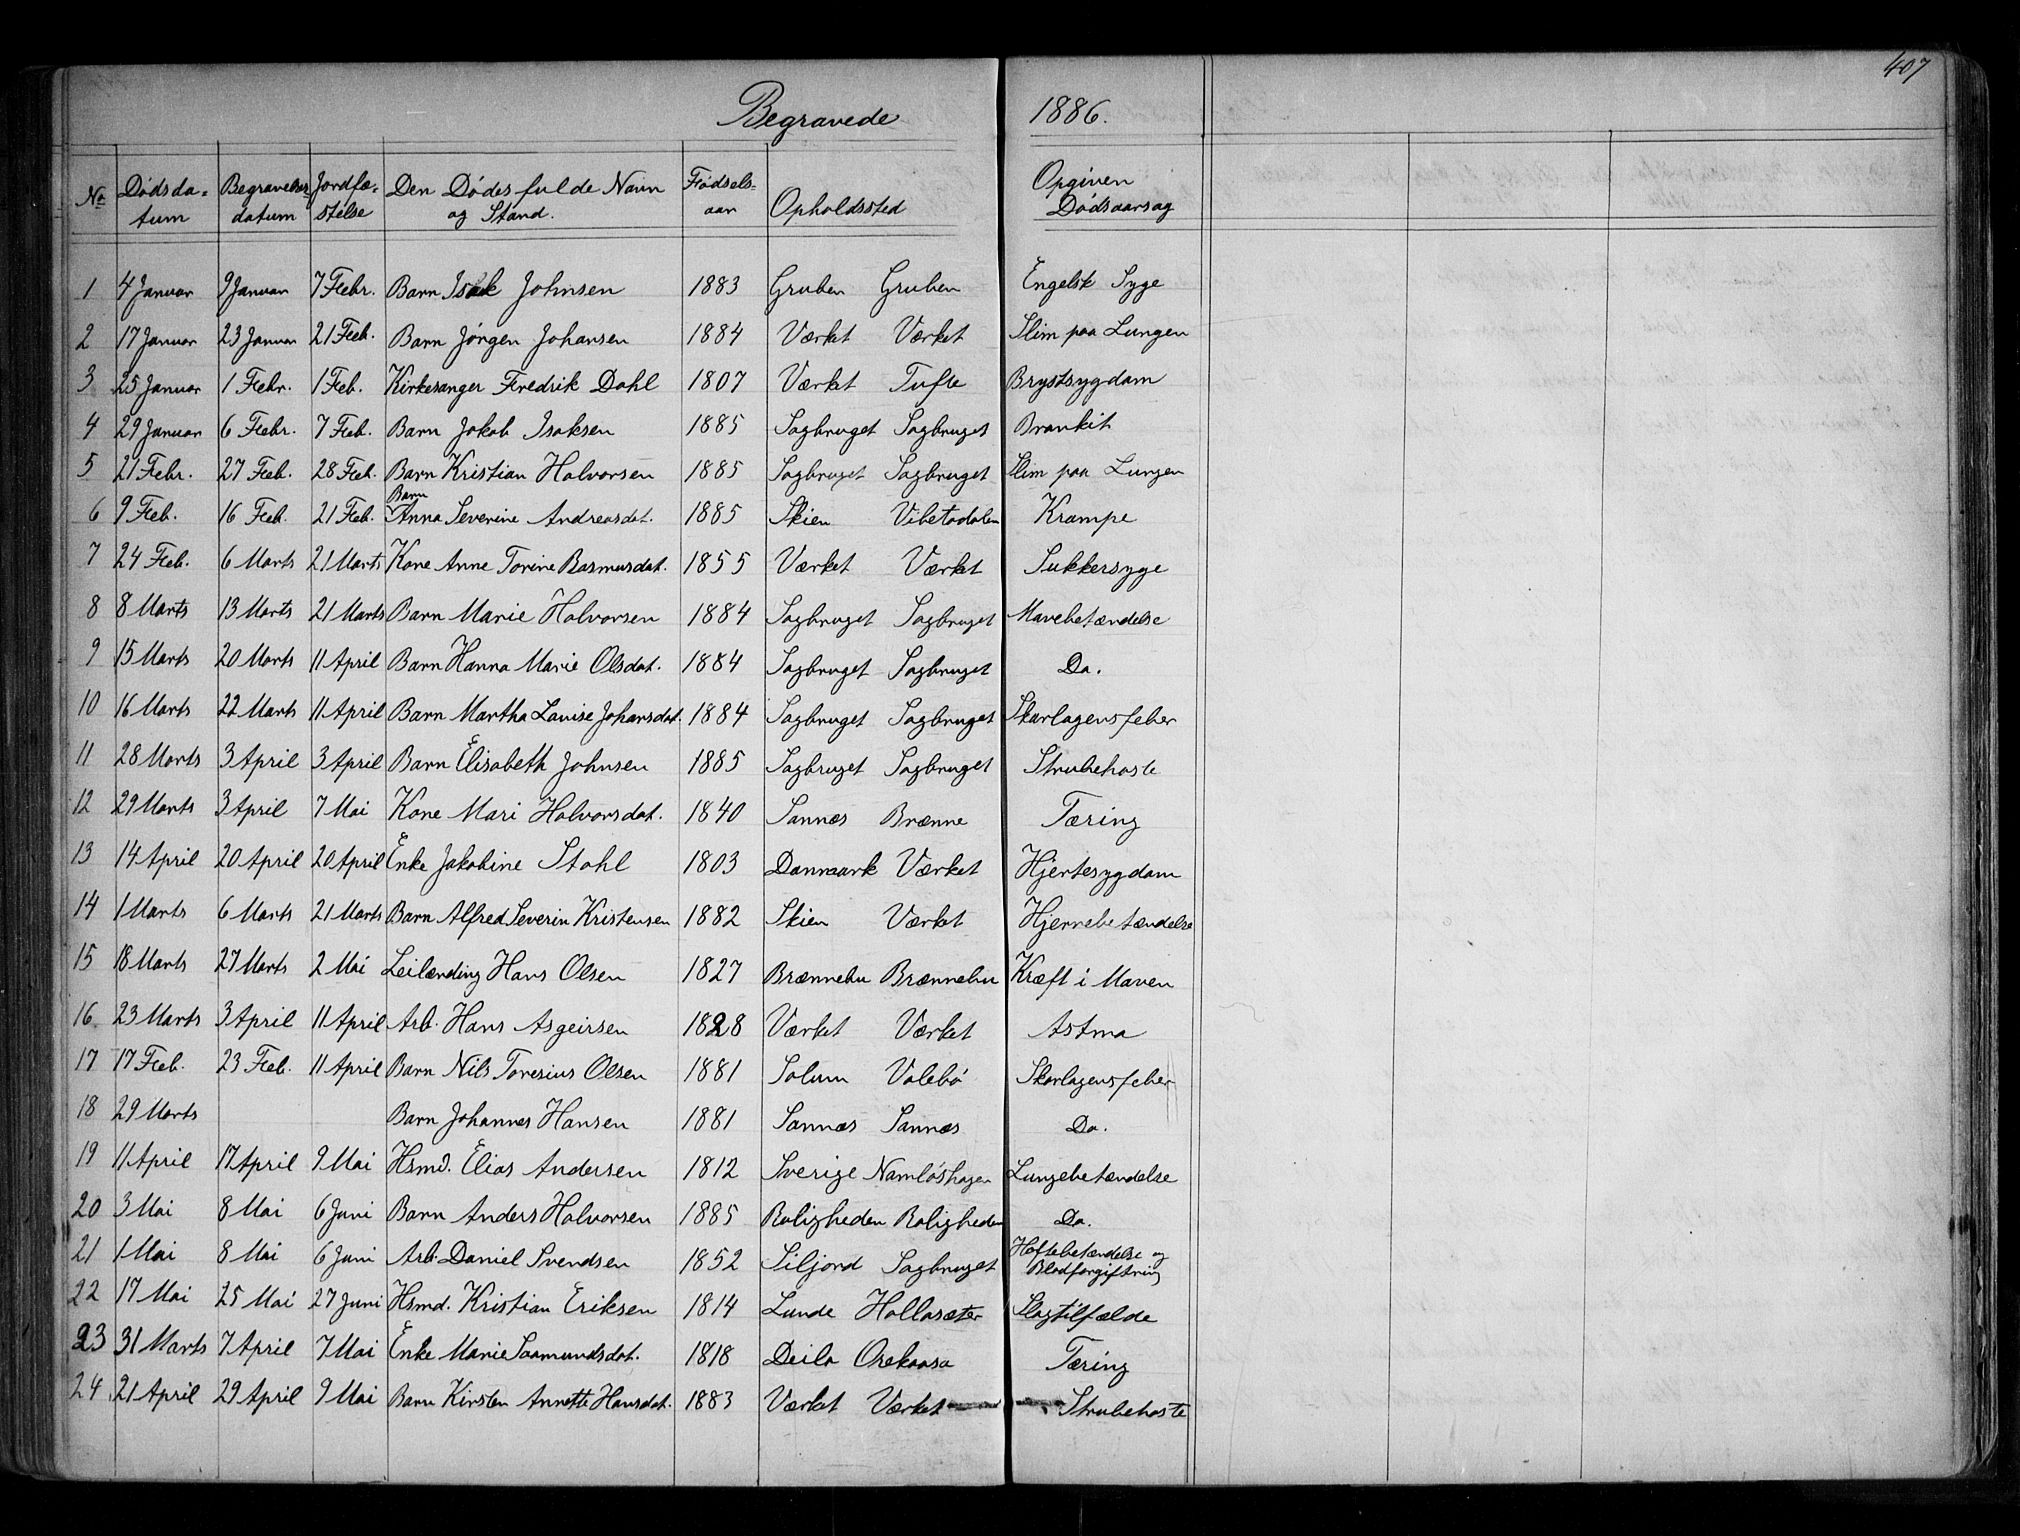 407
Begravede 1886.
No Dødsda= Begravelses Jordfæ= Den Dødes fulde Navn Fødsels= Opholdssted Opgiven
tum datum stelse og Stand. aar Dødsaarsag
1 4 Januar 9 Januar 7 Febr. Barn Isak Johnsen 1883 Gruben Gruben Engelsk Syge
2 17 Januar 23 Januar 21 Feb. Barn Jørgen Johansen 1884 Værket Værket Slim paa Lungen
3 25 Januar 1 Febr. 1 Feb. Kirkesanger Fredrik Dahl 1807 Værket Tufte Brystsygdom
4 29 Januar 6 Febr. 7 Feb. Barn Jakob Isaksen 1885 Sagbruget Sagbruget Bronkit
5 21 Febr. 27 Feb. 28 Feb. Barn Kristian Halvorsen 1885 Sagbruget Sagbruget Slim paa Lungen
6 9 Feb. 16 Feb. 21 Feb. Barn Anna Severine Andreasdat. 1885 Skien Vibetodalen Krampe
7 24 Feb. 6 Marts 21 Marts Kone Anne Torine Rasmusdat. 1855 Værket Værket Sukkersyge
8 8 Marts 13 Marts 21 Marts Barn Marie Halvorsen 1884 Sagbruget Sagbruget Mavebetændelse
9 15 Marts 20 Marts 11 April Barn Hanna Marie Olsdat. 1884 Sagbruget Sagbruget Do.
10 16 Marts 22 Marts 11 April Barn Martha Lovise Johansdat. 1884 Sagbruget Sagbruget Skarlagensfeber
11 28 Marts 3 April 3 April Barn Elisabeth Johnsen 1885 Sagbruget Sagbruget Strubehoste
12 29 Marts 3 April 7 Mai Kone Mari Halvorsdat. 1840 Sannes Brænne Tæring
13 14 April 20 April 20 April Enke Jakobine Stahl 1803 Danmark Værket Hjertesygdom
14 1 Marts 6 Marts 21 Marts Barn Alfred Severin Kristensen 1882 Skien Værket Hjernebetændelse
15 18 Marts 27 Marts 2 Mai Leilænding Hans Olsen 1827 Brænnebu Brænnebu Kræft i Maven
16 23 Marts 3 April 11 April Arb. Hans Asgeirsen 1828 Værket Værket Astma
17 17 Feb. 23 Feb. 11 April Barn Nils Toresius Olsen 1881 Solum Valebø Skarlagensfeber
18 29 Marts Barn Johannes Hansen 1881 Sannes Sannes Do.
19 11 April 17 April 9 Mai Hsmd. Elias Andersen 1812 Sverige Namløshagen Lungebetændelse
20 3 Mai 8 Mai 6 Juni Barn Anders Halvorsen 1885 Roligheden Roligheden Do.
21 1 Mai 8 Mai 6 Juni Arb. Daniel Svendsen 1852 Siljord Sagbruget Hoftebetændelse og
Blodforgiftning
22 17 Mai 25 Mai 27 Juni Hsmd. Kristian Eriksen 1814 Lunde Hollasæter Slagtilfælde
23 31 Marts 7 April 7 Mai Enke Marie Saamundsdat. 1818 Deila Orekaasa Tæring
24 21 April 29 April 9 Mai Barn Kirsten Annette Hansdat. 1883 Værket Værket Strubehoste